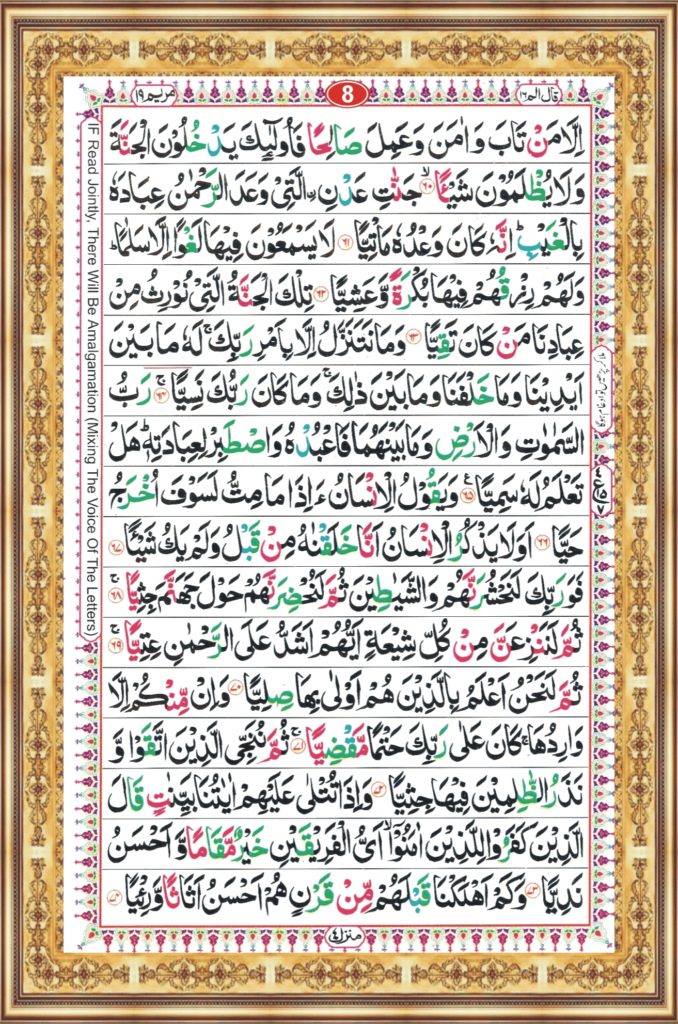 قال الم ١٦
8
مريم ١٩
اِلَّا مَنْ تَابَ وَ اٰمَنَ وَ عَمِلَ صَالِحًا فَاُولٰٓئِكَ يَدْخُلُوْنَ الْجَنَّةَ
وَلَا يُظْلَمُوْنَ شَيْـًٔا ۙ۶۰ جَنّٰتِ عَدْنِ ۨالَّتِيْ وَعَدَ الرَّحْمٰنُ عِبَادَهٗ
بِالْغَيْبِ ؕ اِنَّهٗ كَانَ وَعْدُهٗ مَاْتِيًّا ۶۱ لَا يَسْمَعُوْنَ فِيْهَا لَغْوًا اِلَّا سَلٰمًا ؕ
وَلَهُمْ رِزْقُهُمْ فِيْهَا بُكْرَةً وَّعَشِيًّا ۶۲ تِلْكَ الْجَنَّةُ الَّتِيْ نُوْرِثُ مِنْ
عِبَادِنَا مَنْ كَانَ تَقِيًّا ۶۳ وَمَا نَتَنَزَّلُ اِلَّا بِاَمْرِ رَبِّكَ ۚ لَهٗ مَا بَيْنَ
اَيْدِيْنَا وَمَا خَلْفَنَا وَمَا بَيْنَ ذٰلِكَ ۚ وَمَا كَانَ رَبُّكَ نَسِيًّا ۚ۶۴ رَبُّ
السَّمٰوٰتِ وَالْاَرْضِ وَمَا بَيْنَهُمَا فَاعْبُدْهُ وَاصْطَبِرْ لِعِبَادَتِهٖ ؕ هَلْ
تَعْلَمُ لَهٗ سَمِيًّا ۶۵ وَيَقُوْلُ الْاِنْسَانُ ءَاِذَا مَا مِتُّ لَسَوْفَ اُخْرَجُ
حَيًّا ۶۶ اَوَلَا يَذْكُرُ الْاِنْسَانُ اَنَّا خَلَقْنٰهُ مِنْ قَبْلُ وَلَمْ يَكُ شَيْـًٔا ۶۷
فَوَرَبِّكَ لَنَحْشُرَنَّهُمْ وَالشَّيٰطِيْنَ ثُمَّ لَنُحْضِرَنَّهُمْ حَوْلَ جَهَنَّمَ جِثِيًّا ۚ۶۸
ثُمَّ لَنَنْزِعَنَّ مِنْ كُلِّ شِيْعَةٍ اَيُّهُمْ اَشَدُّ عَلَى الرَّحْمٰنِ عِتِيًّا ۚ۶۹
ثُمَّ لَنَحْنُ اَعْلَمُ بِالَّذِيْنَ هُمْ اَوْلٰى بِهَا صِلِيًّا ۷۰ وَاِنْ مِّنْكُمْ اِلَّا
وَارِدُهَا ۚ كَانَ عَلٰى رَبِّكَ حَتْمًا مَّقْضِيًّا ۚ۷۱ ثُمَّ نُنَجِّي الَّذِيْنَ اتَّقَوْا وَّ
نَذَرُ الظّٰلِمِيْنَ فِيْهَا جِثِيًّا ۷۲ وَاِذَا تُتْلٰى عَلَيْهِمْ اٰيٰتُنَا بَيِّنٰتٍ قَالَ
الَّذِيْنَ كَفَرُوْا لِلَّذِيْنَ اٰمَنُوْۤا ۙ اَيُّ الْفَرِيْقَيْنِ خَيْرٌ مَّقَامًا وَّ اَحْسَنُ
نَدِيًّا ۷۳ وَكَمْ اَهْلَكْنَا قَبْلَهُمْ مِّنْ قَرْنٍ هُمْ اَحْسَنُ اَثَاثًا وَّرِءْيًا ۷۴
منزل ٤
IF Read Jointly, There Will Be Amalgamation (Mixing The Voice Of The Letters)
ملا کر پڑھیں تو ادغام ہوگا